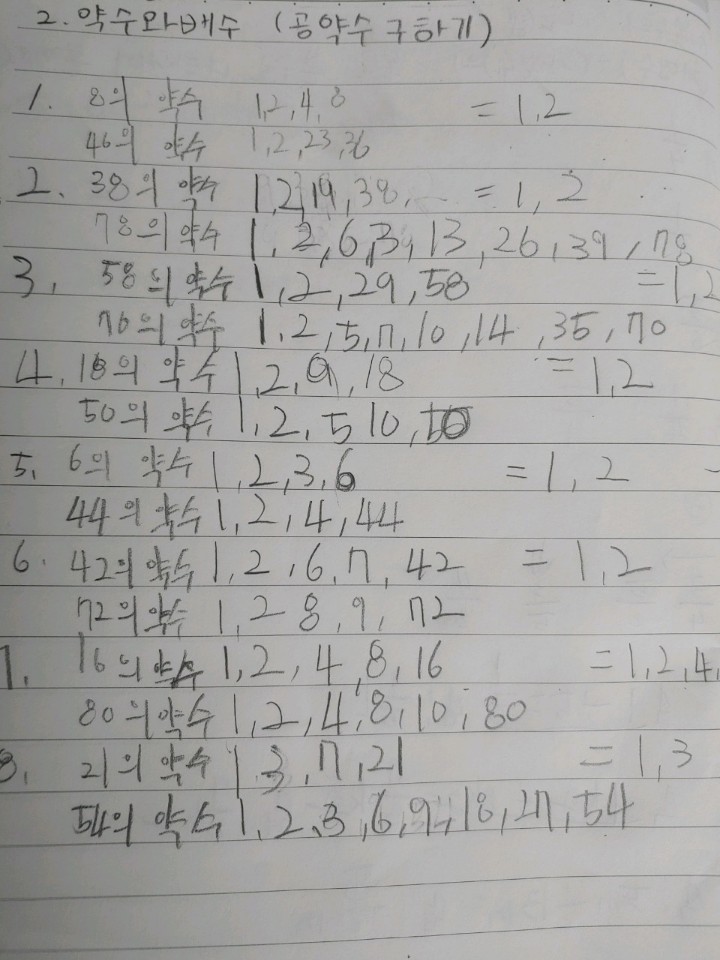 2. 약수와배수 (공약수 구하기)
1. 8의 약수 1,2,4,8 = 1,2
46의 약수 1,2,23,36
2. 38의 약수 1,2,19,38, = 1, 2
78의 약수 1, 2,6,3,13,26,39,78
3. 58의 약수 1,2,29,58 =1,2
70의 약수 1.2,5,7,10,14,35,70
4. 18의 약수 1,2,9,18 = 1,2
50의 약수 1,2,5 10,50
5. 6의 약수 1,2,3,6 = 1, 2
44의 약수 1,2,4,44
6. 42의 약수 1,2,6,7,42 = 1,2
72의 약수 1,2 8,9,72
7. 16의 약수 1,2,4,8,16 =1,2,4,
80의 약수 1,2,4,8,10,80
8. 21의 약수 1 3,7,21 = 1,3
54의 약수 1,2,3,6,9,18,27,54